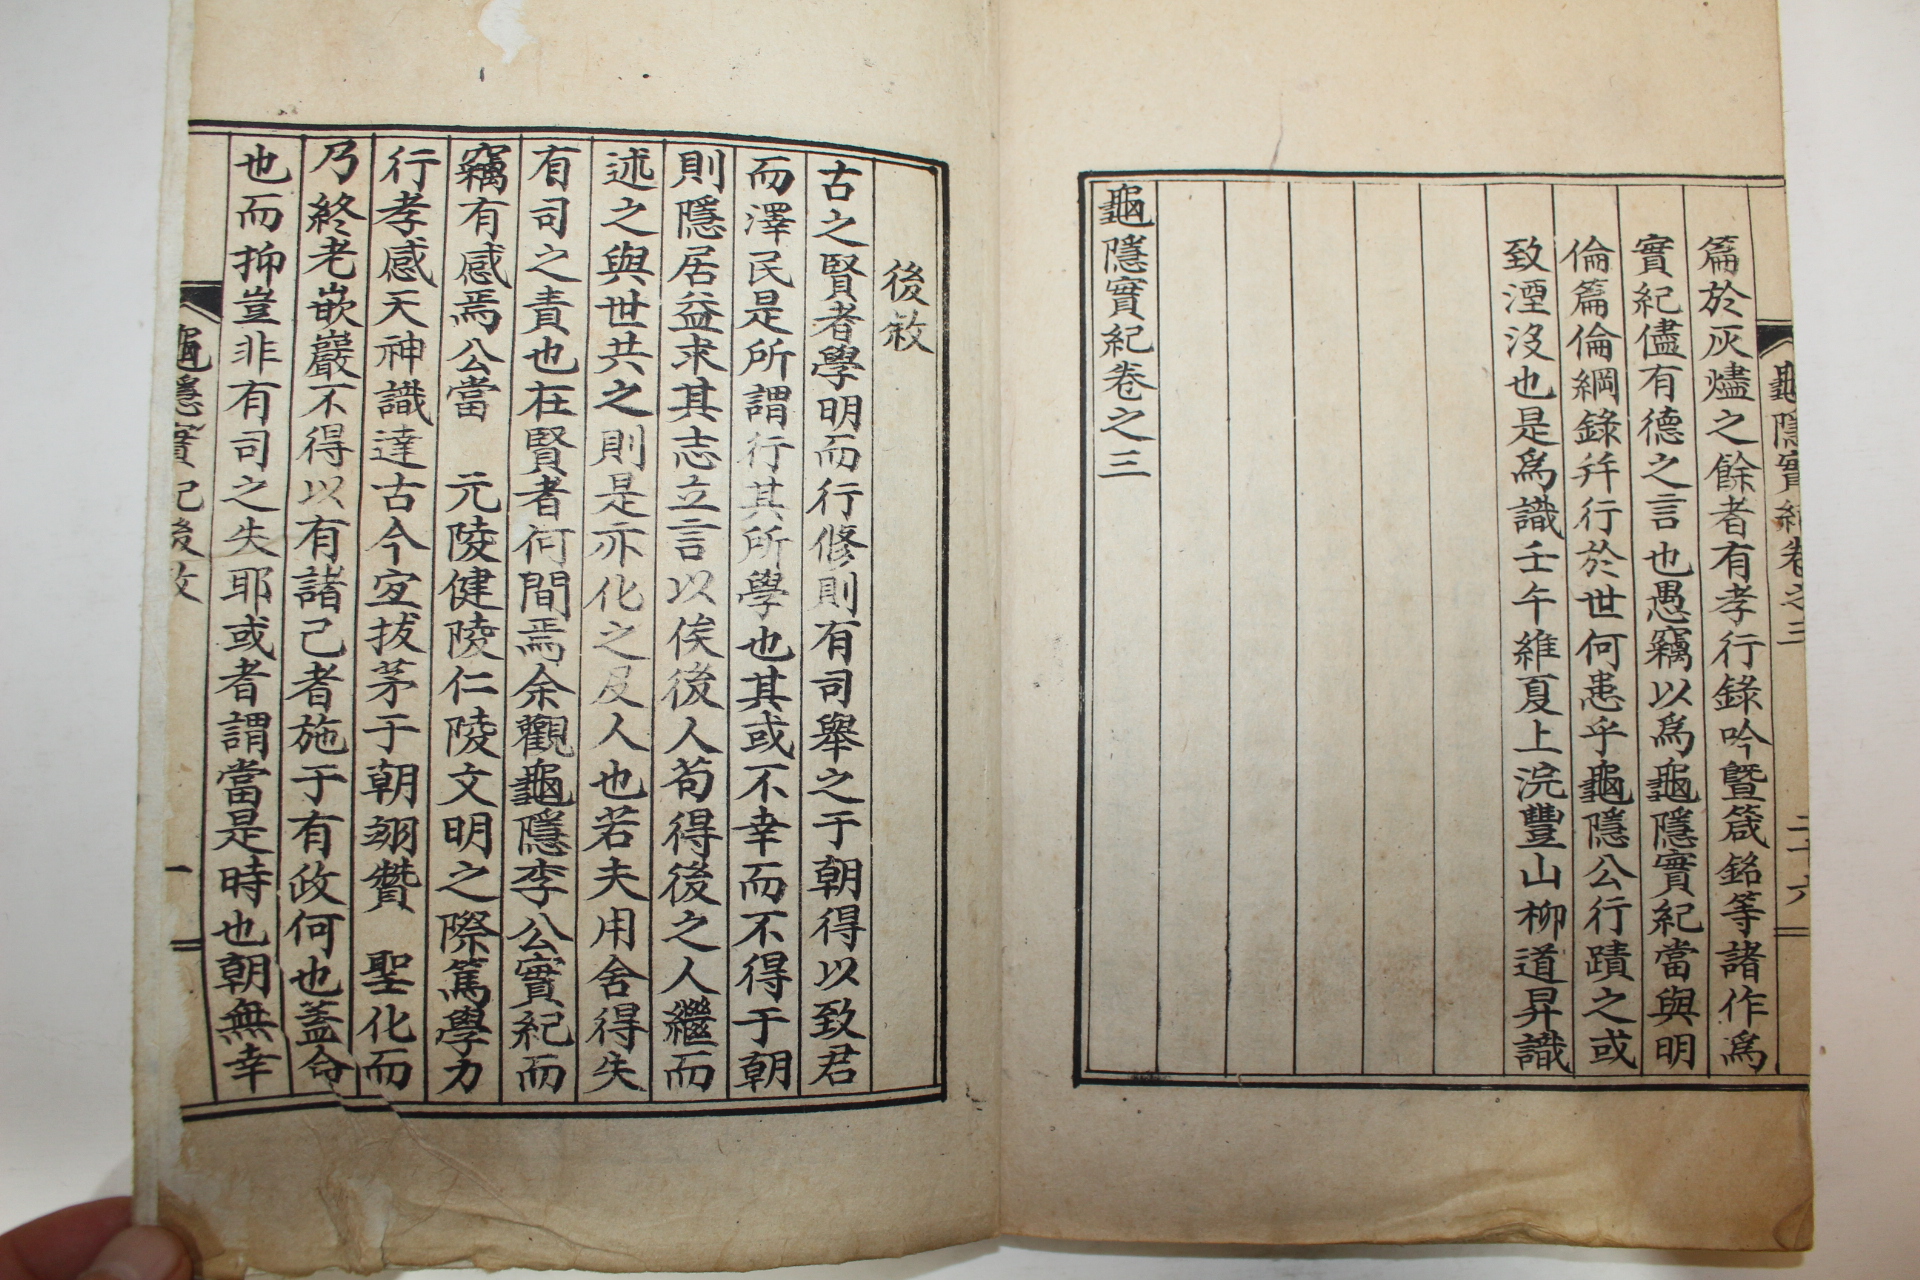 龜隱實紀卷之三
二十六
篇於灰燼之餘者有孝行錄吟暨箴銘等諸作爲
實紀儘有德之言也愚竊以爲龜隱實紀當與明
倫篇倫綱錄幷行於世何患乎龜隱公行蹟之或
致湮沒也是爲識壬午維夏上浣豐山柳道昇識
龜隱實紀卷之三
後敘
古之賢者學明而行修則有司擧之于朝得以致君
而澤民是所謂行其所學也其或不幸而不得于朝
則隱居益求其志立言以俟後人苟得後之人繼而
述之與世共之則是亦化之及人也若夫用舍得失
有司之責也在賢者何間焉余觀龜隱李公實紀而
竊有感焉公當 元陵健陵仁陵文明之際篤學力
行孝感天神識達古今宜拔茅于朝翊贊 聖化而
乃終老嵌巖不得以有諸己者施于有政何也蓋命
也而抑豈非有司之失耶或者謂當是時也朝無幸
龜隱實紀後敘
一